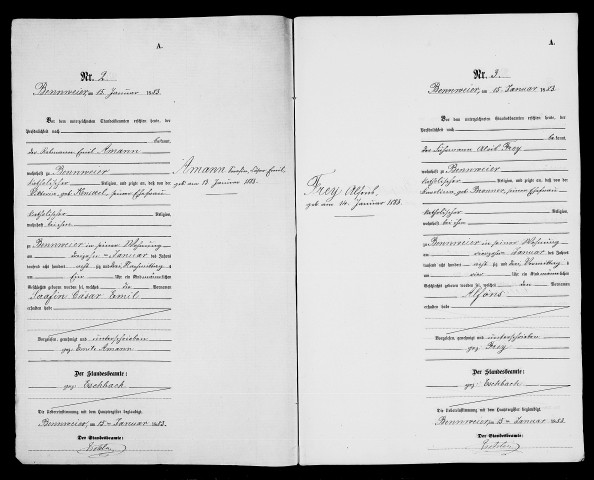 A.
Nr. 2
Bennweier, am 15. Januar 1883.
Vor dem unterzeichneten Standesbeamten erschien heute, der
Persönlichkeit nach
bekannt,
der Emil Amann
wohnhaft zu Bennweier
katholischer Religion, und zeigte an, daß von der
geb. seiner Ehefrau
katholischer Religion,
wohnhaft bei ihm
zu Bennweier in seiner Wohnung
am Januar des Jahres
tausend acht hundert acht zig und drei, Nachmittag s
um Uhr ein Kind männlichen
Geschlecht geboren sei, welches die Vornamen
Serafin Cäsar Emil
erhalten habe
Vorgelesen, genehmigt und unterschrieben
gez. Emile Amann
Der Standesbeamte:
gez. Eschbach
Die Uebereinstimmung mit dem Hauptregister beglaubigt.
Bennweier, am 15. Januar 1883.
Der Standesbeamte:
Amann Emil,
geb. am 13 Januar 1883.
A.
Nr. 3.
Bennweier, am 15. Januar 1883.
Vor dem unterzeichneten Standesbeamten erschien heute, der
Persönlichkeit nach
bekannt,
der Frey
wohnhaft zu Bennweier
katholischer Religion, und zeigte an, daß von der
geb. seiner Ehefrau
katholischer Religion,
wohnhaft bei ihm
zu Bennweier in seiner Wohnung
am vierzehn Januar des Jahres
tausend acht hundert acht zig und drei, Vormittag s
um vier Uhr ein Kind männlichen
Geschlecht geboren sei, welches den Vornamen
Alfons
erhalten habe
Vorgelesen, genehmigt und unterschrieben
gez. Frey
Der Standesbeamte:
gez. Eschbach
Die Uebereinstimmung mit dem Hauptregister beglaubigt.
Bennweier, am 15. Januar 1883.
Der Standesbeamte:
Frey Alfons,
geb. am 14. Januar 1883.